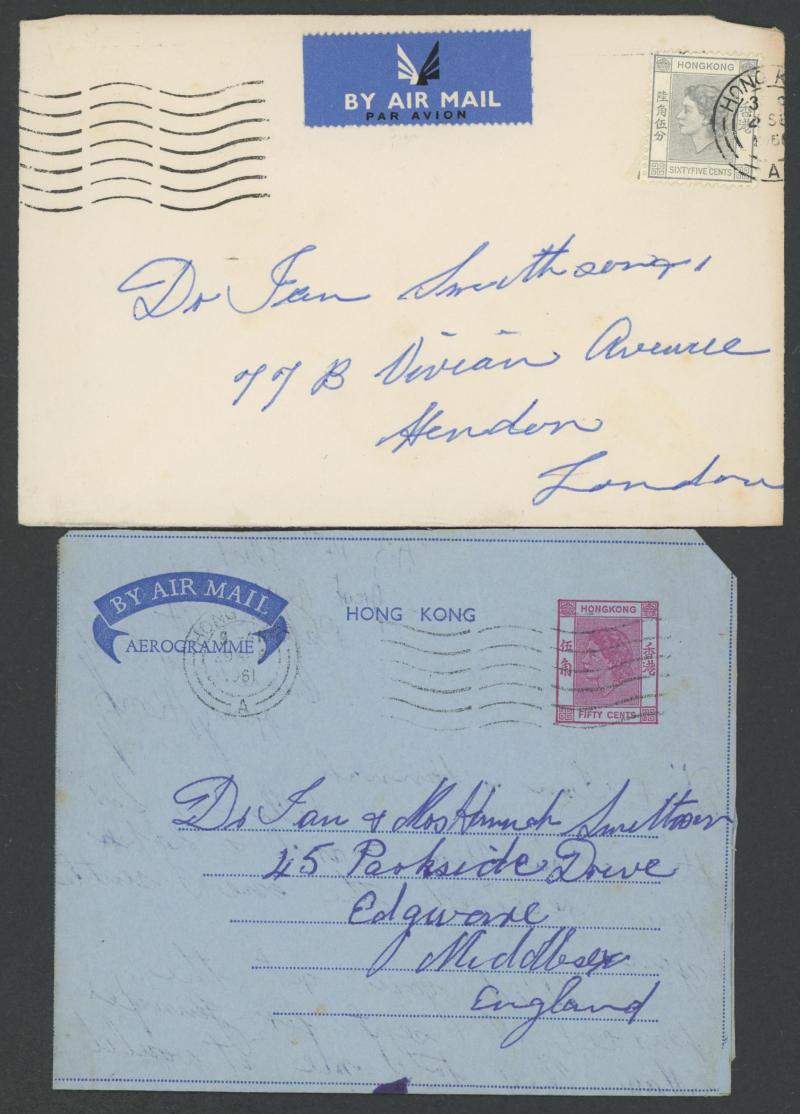 BY AIR MAIL
PAR AVION
HONGKONG
陸角伍分
香港
SIXTYFIVE CENTS
HONG K
A
Dr Ian Smithson
77 B Vivian Avenue
Hendon
London
BY AIR MAIL
AEROGRAMME
HONG KONG
HONG
1961
A
HONGKONG
伍角
香港
FIFTY CENTS
Dr Ian & Mrs Hannah Smithson
45 Parkside Drive
Edgware
Middlesex
England